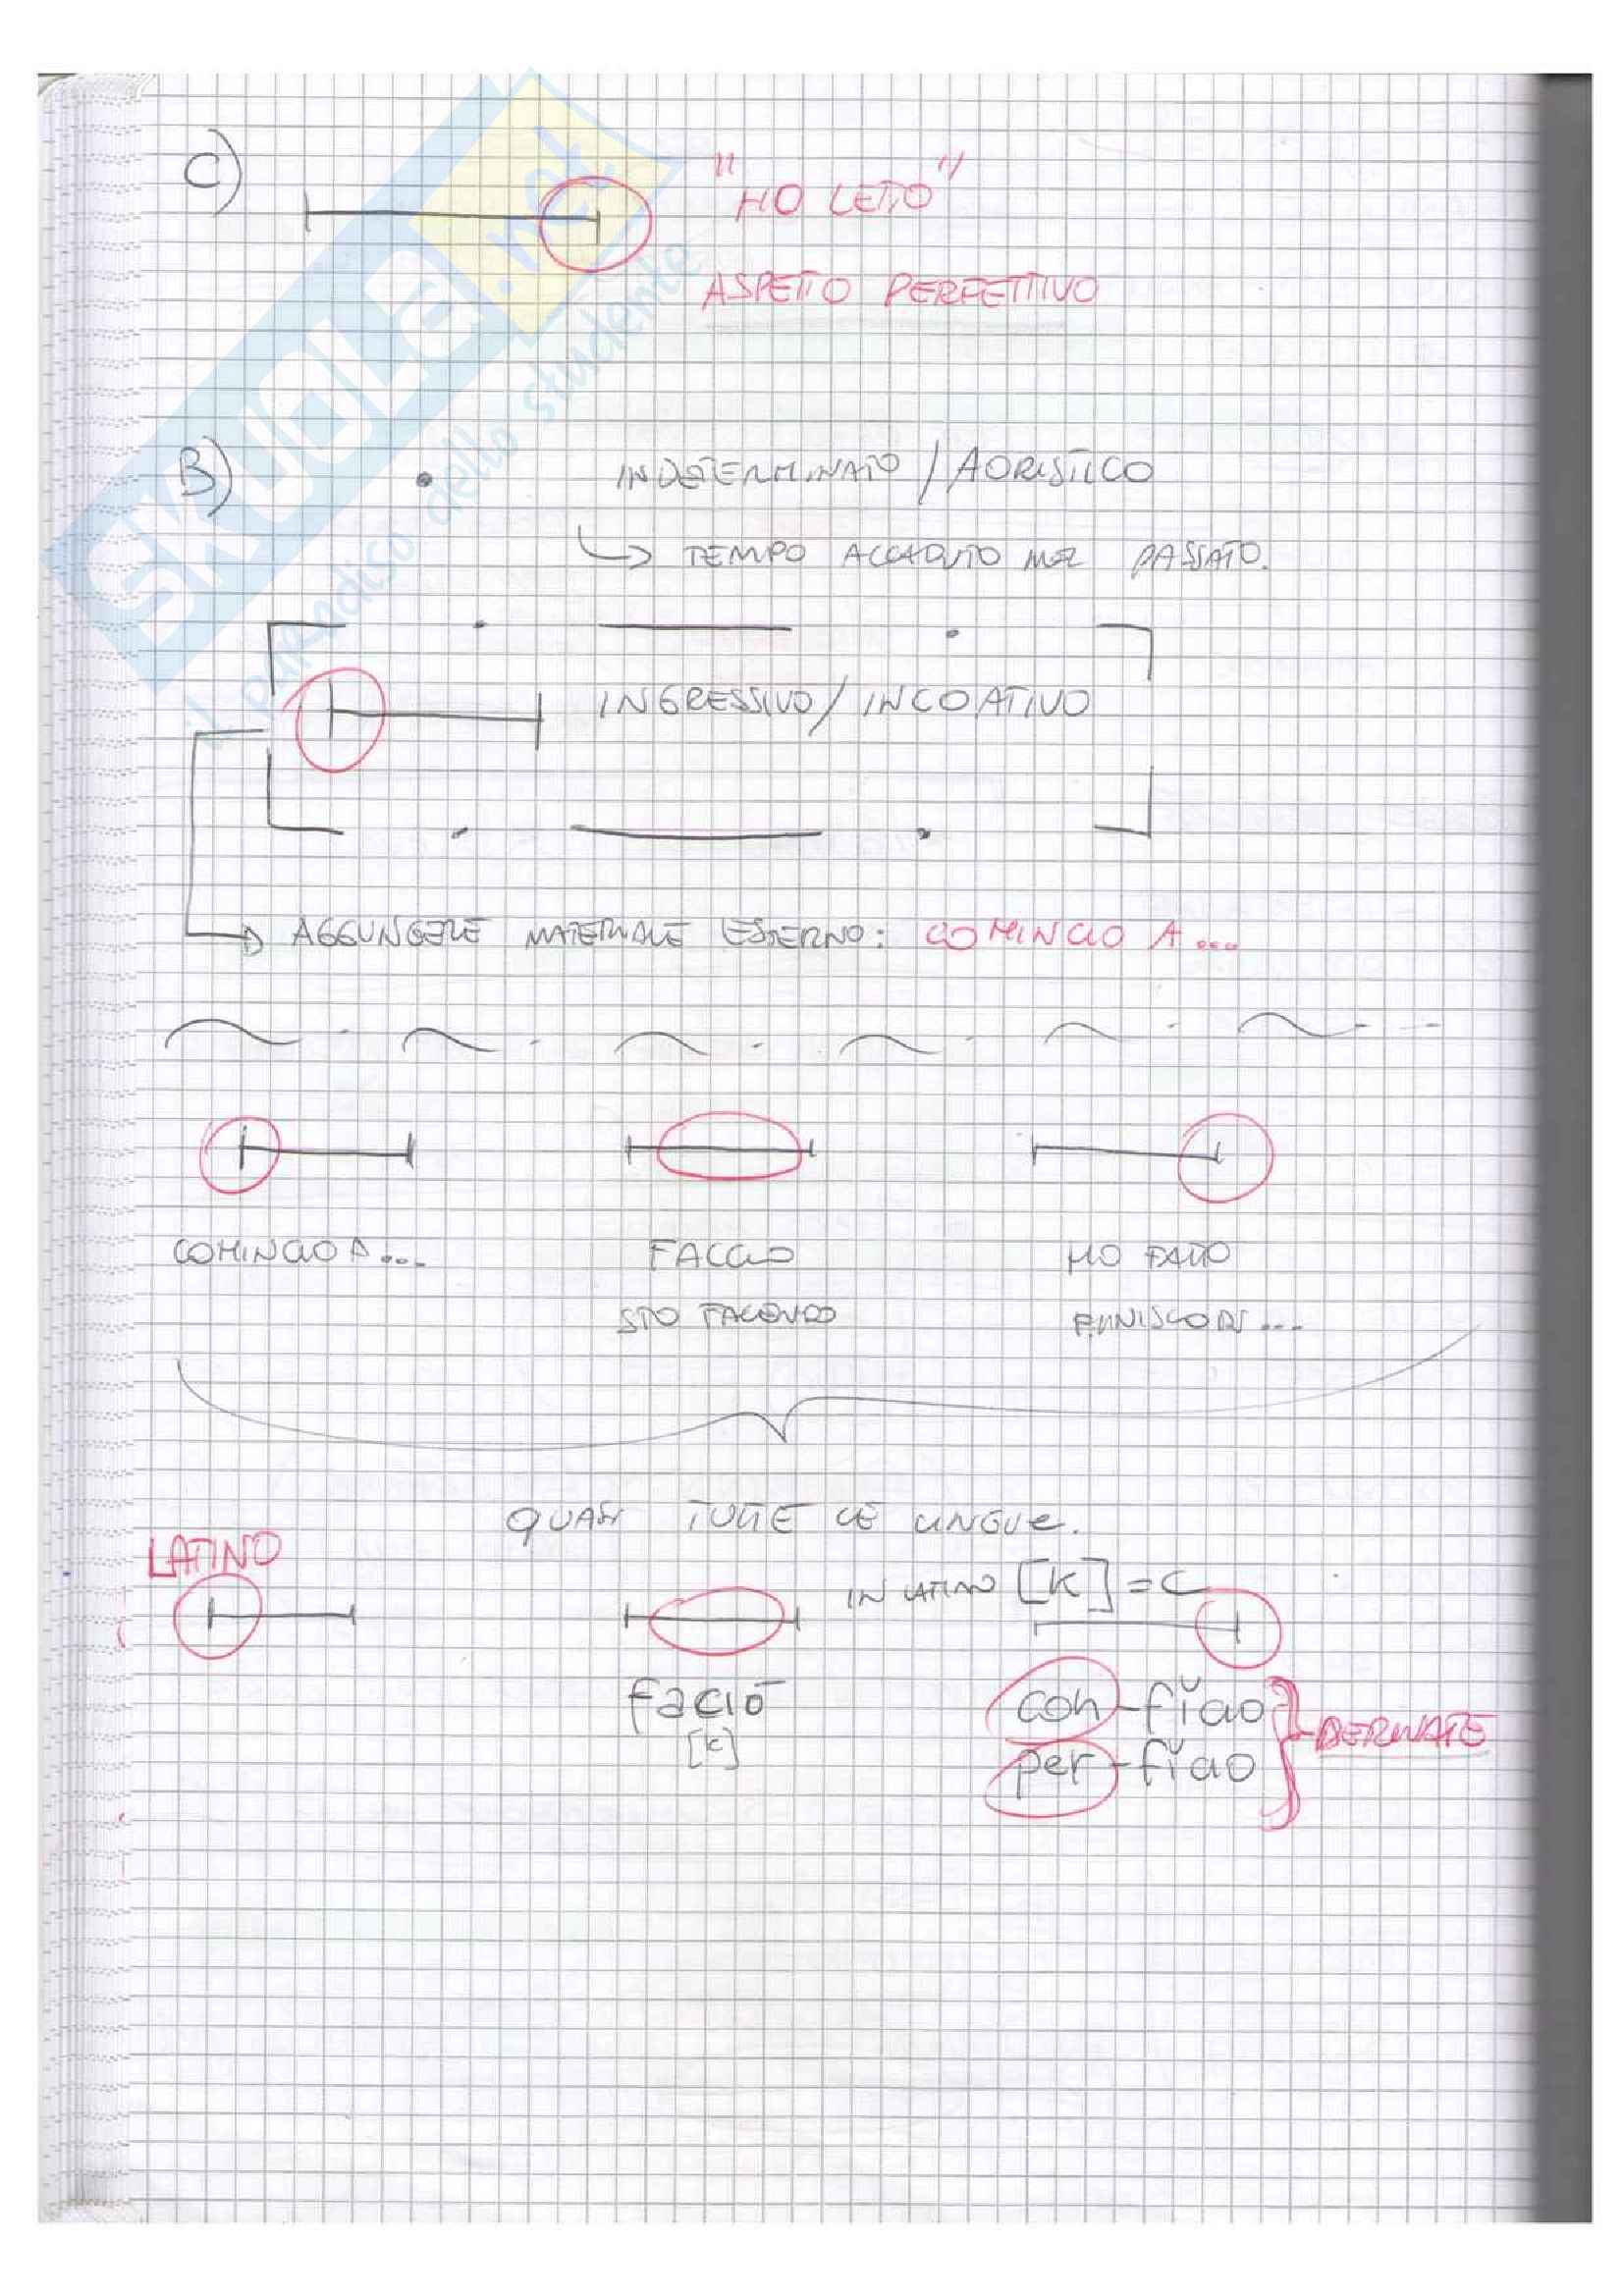 C)
"HO LETTO"
ASPETTO PERFETTIVO
B) • INDETERMINATO / AORISTICO
↳ TEMPO ACCADUTO NEL PASSATO.
INGRESSIVO / INCOATIVO
→ AGGIUNGERE MATERIALE ESTERNO: COMINCIO A...
COMINCIO A... FACCIO HO FATTO
STO FACENDO FINISCO DI...
QUASI TUTTE LE LINGUE.
LATINO
IN LATINO [K] = C
faciō con-fĭcio
[k] per-fĭcio
DERIVATE
SKUOLA.net
il paradiso dello studente